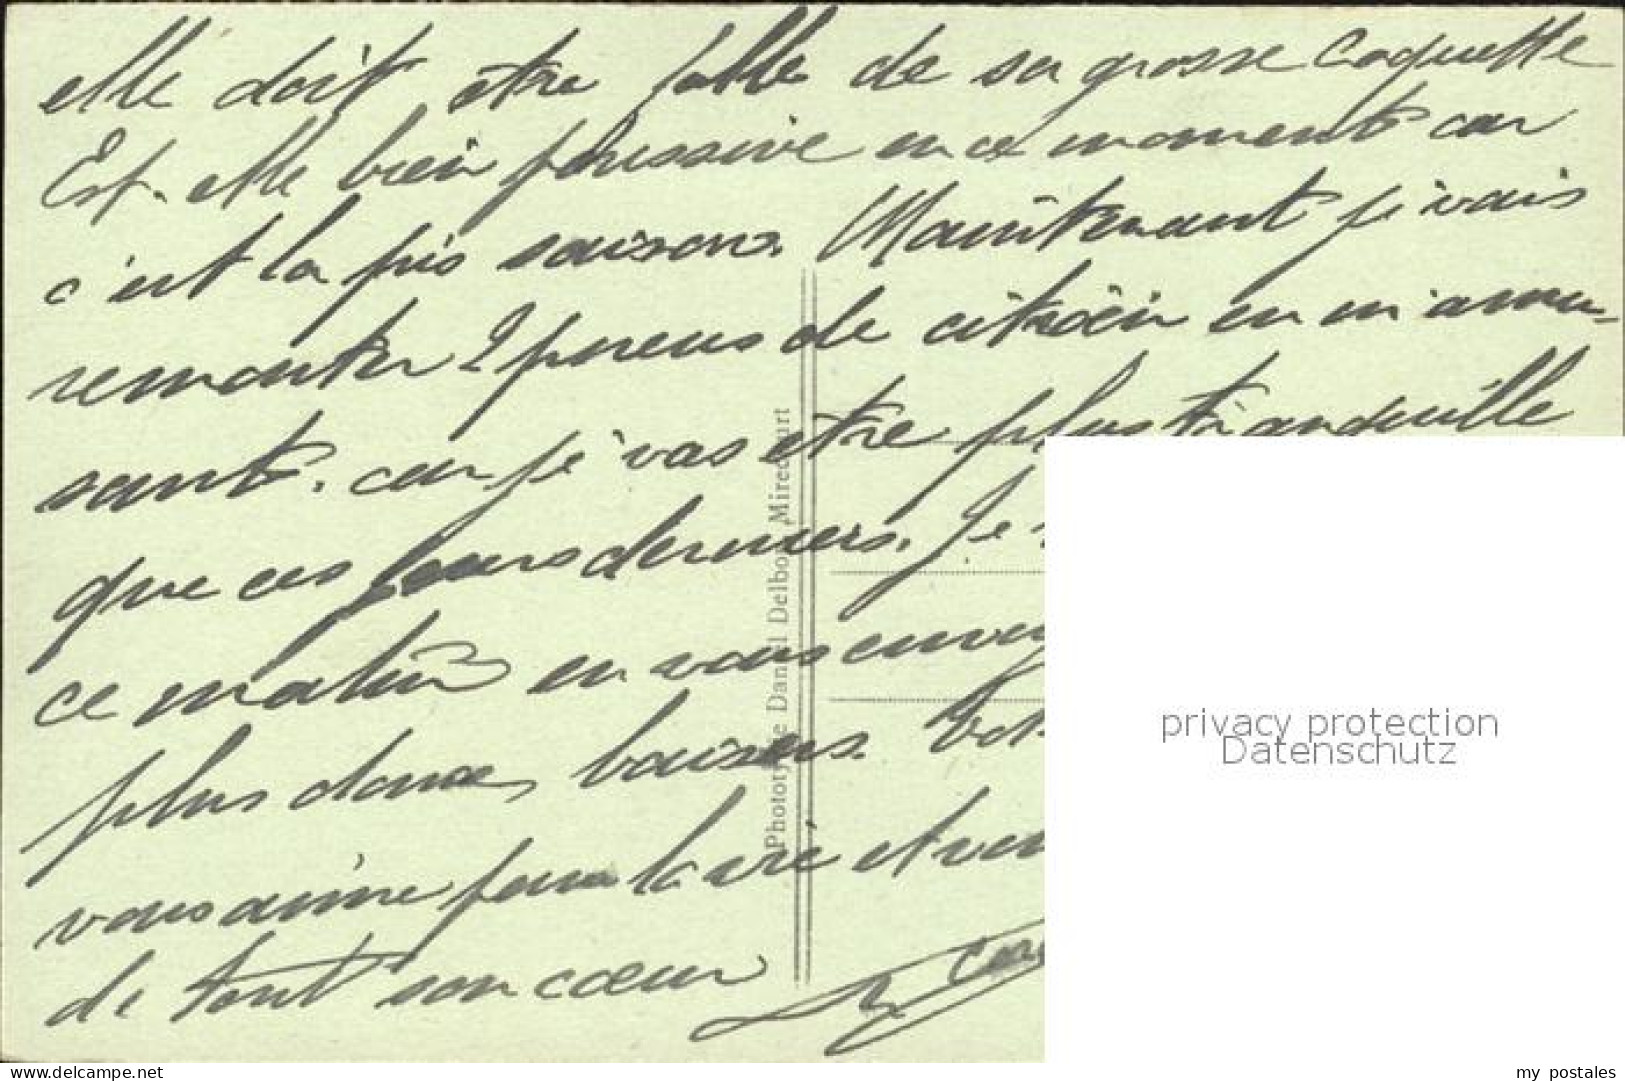 elle doit être folle de sa grosse Coquette
Est-elle bien poussive en ce moment car
c'est la pis saisons. Maintenant je vais
remonter 2 pneus de citroën en m'amu-
sant. car je vas etre plus tranquille
que ces jours derniers. Je
ce matin en vous
plus doux baisers.
vous aime pour la vie et
de tout son cœur
Phototypie Daniel Delboy, Mirecourt
privacy protection
Datenschutz
delcampe.net
my_postales